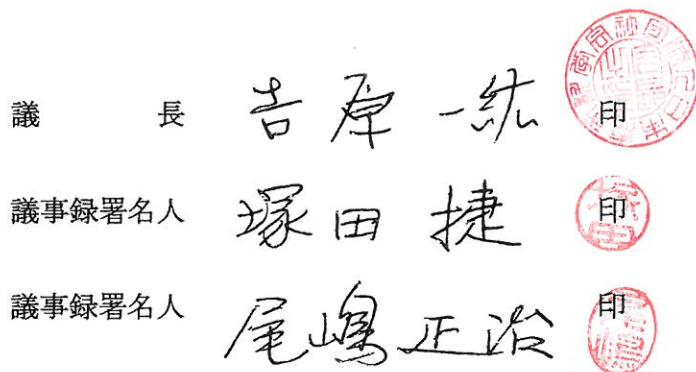 議長 吉原一紘 印
議事録署名人 塚田捷 印
議事録署名人 尾嶋正治 印